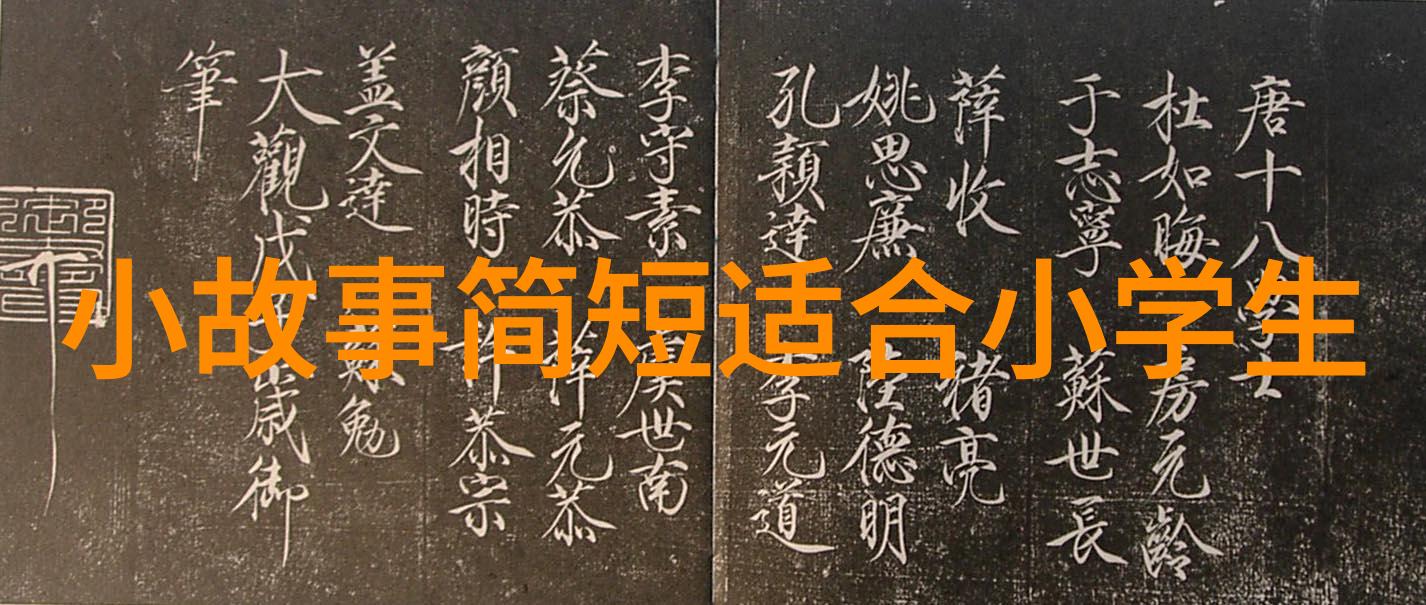 唐十八學士
杜如晦 房元齡
于志寧 蘇世長
薛收 褚亮
姚思廉 陸德明
孔穎達 李元道
李守素 虞世南
蔡允恭 薛元敬
顏相時 許敬宗
盖文達 蘇勉
大觀戊子歲御
筆
小故事简短适合小学生